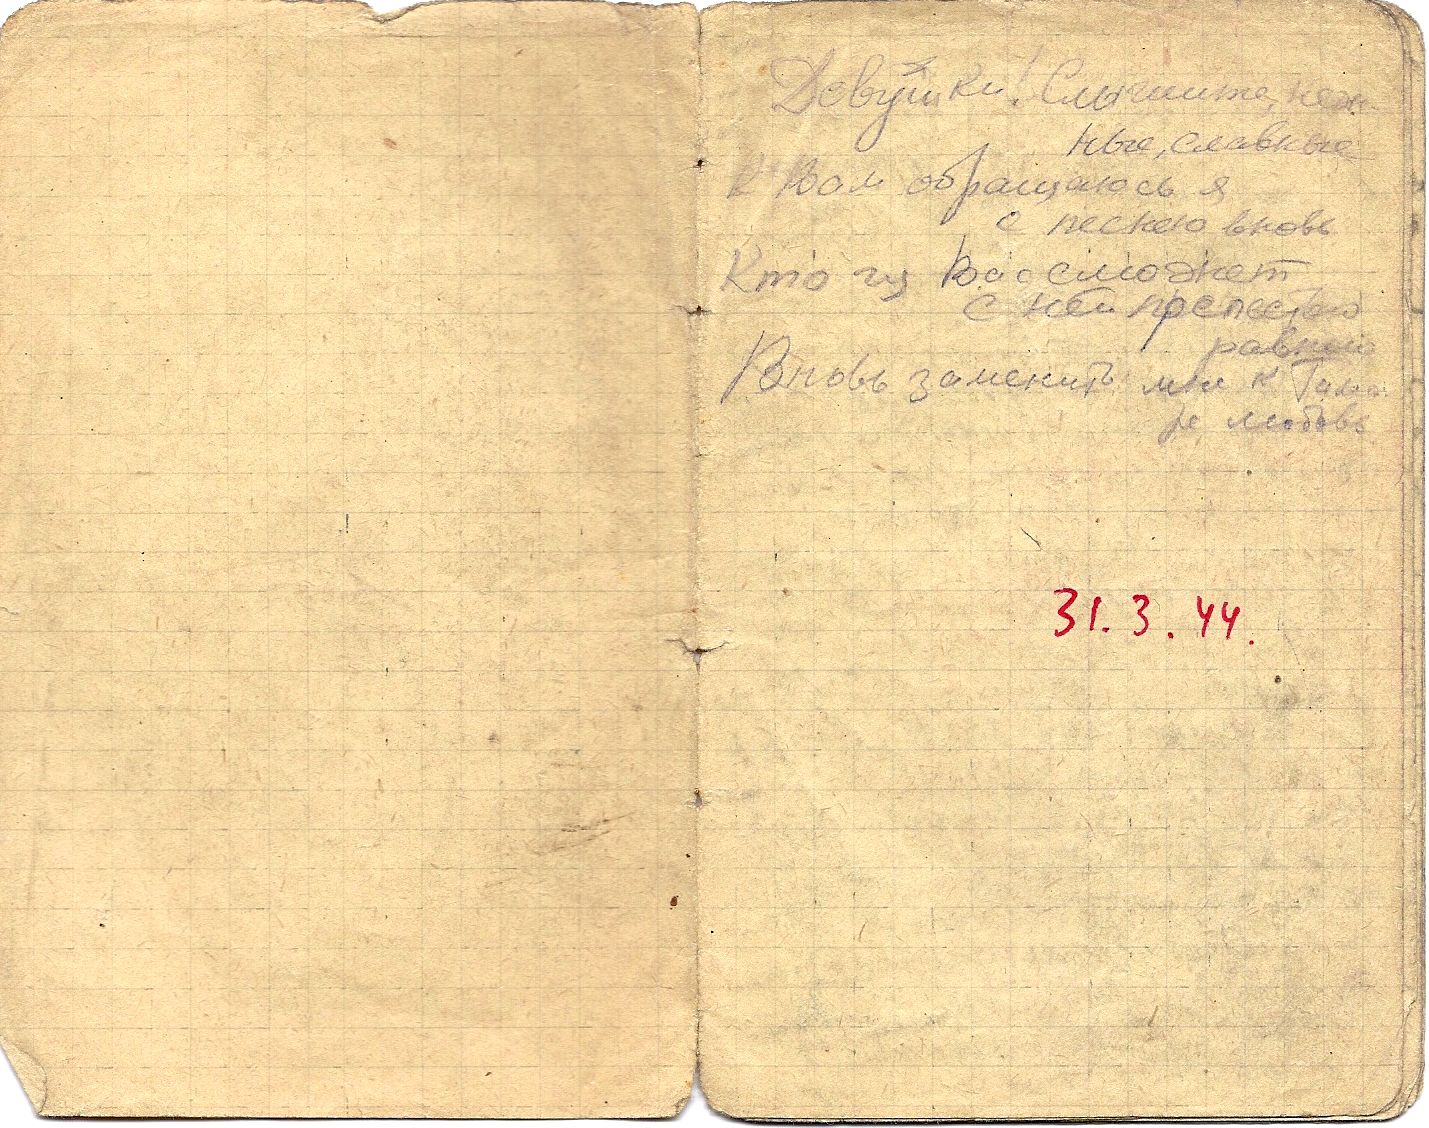 Девушки! Слышите, неж-
ные, славные
К Вам обращаюсь я
с песнею вновь
Кто из Вас сможет
с ней прелестью
равной
Вновь заменить мне к Тама-
ре любовь
31.3.44.